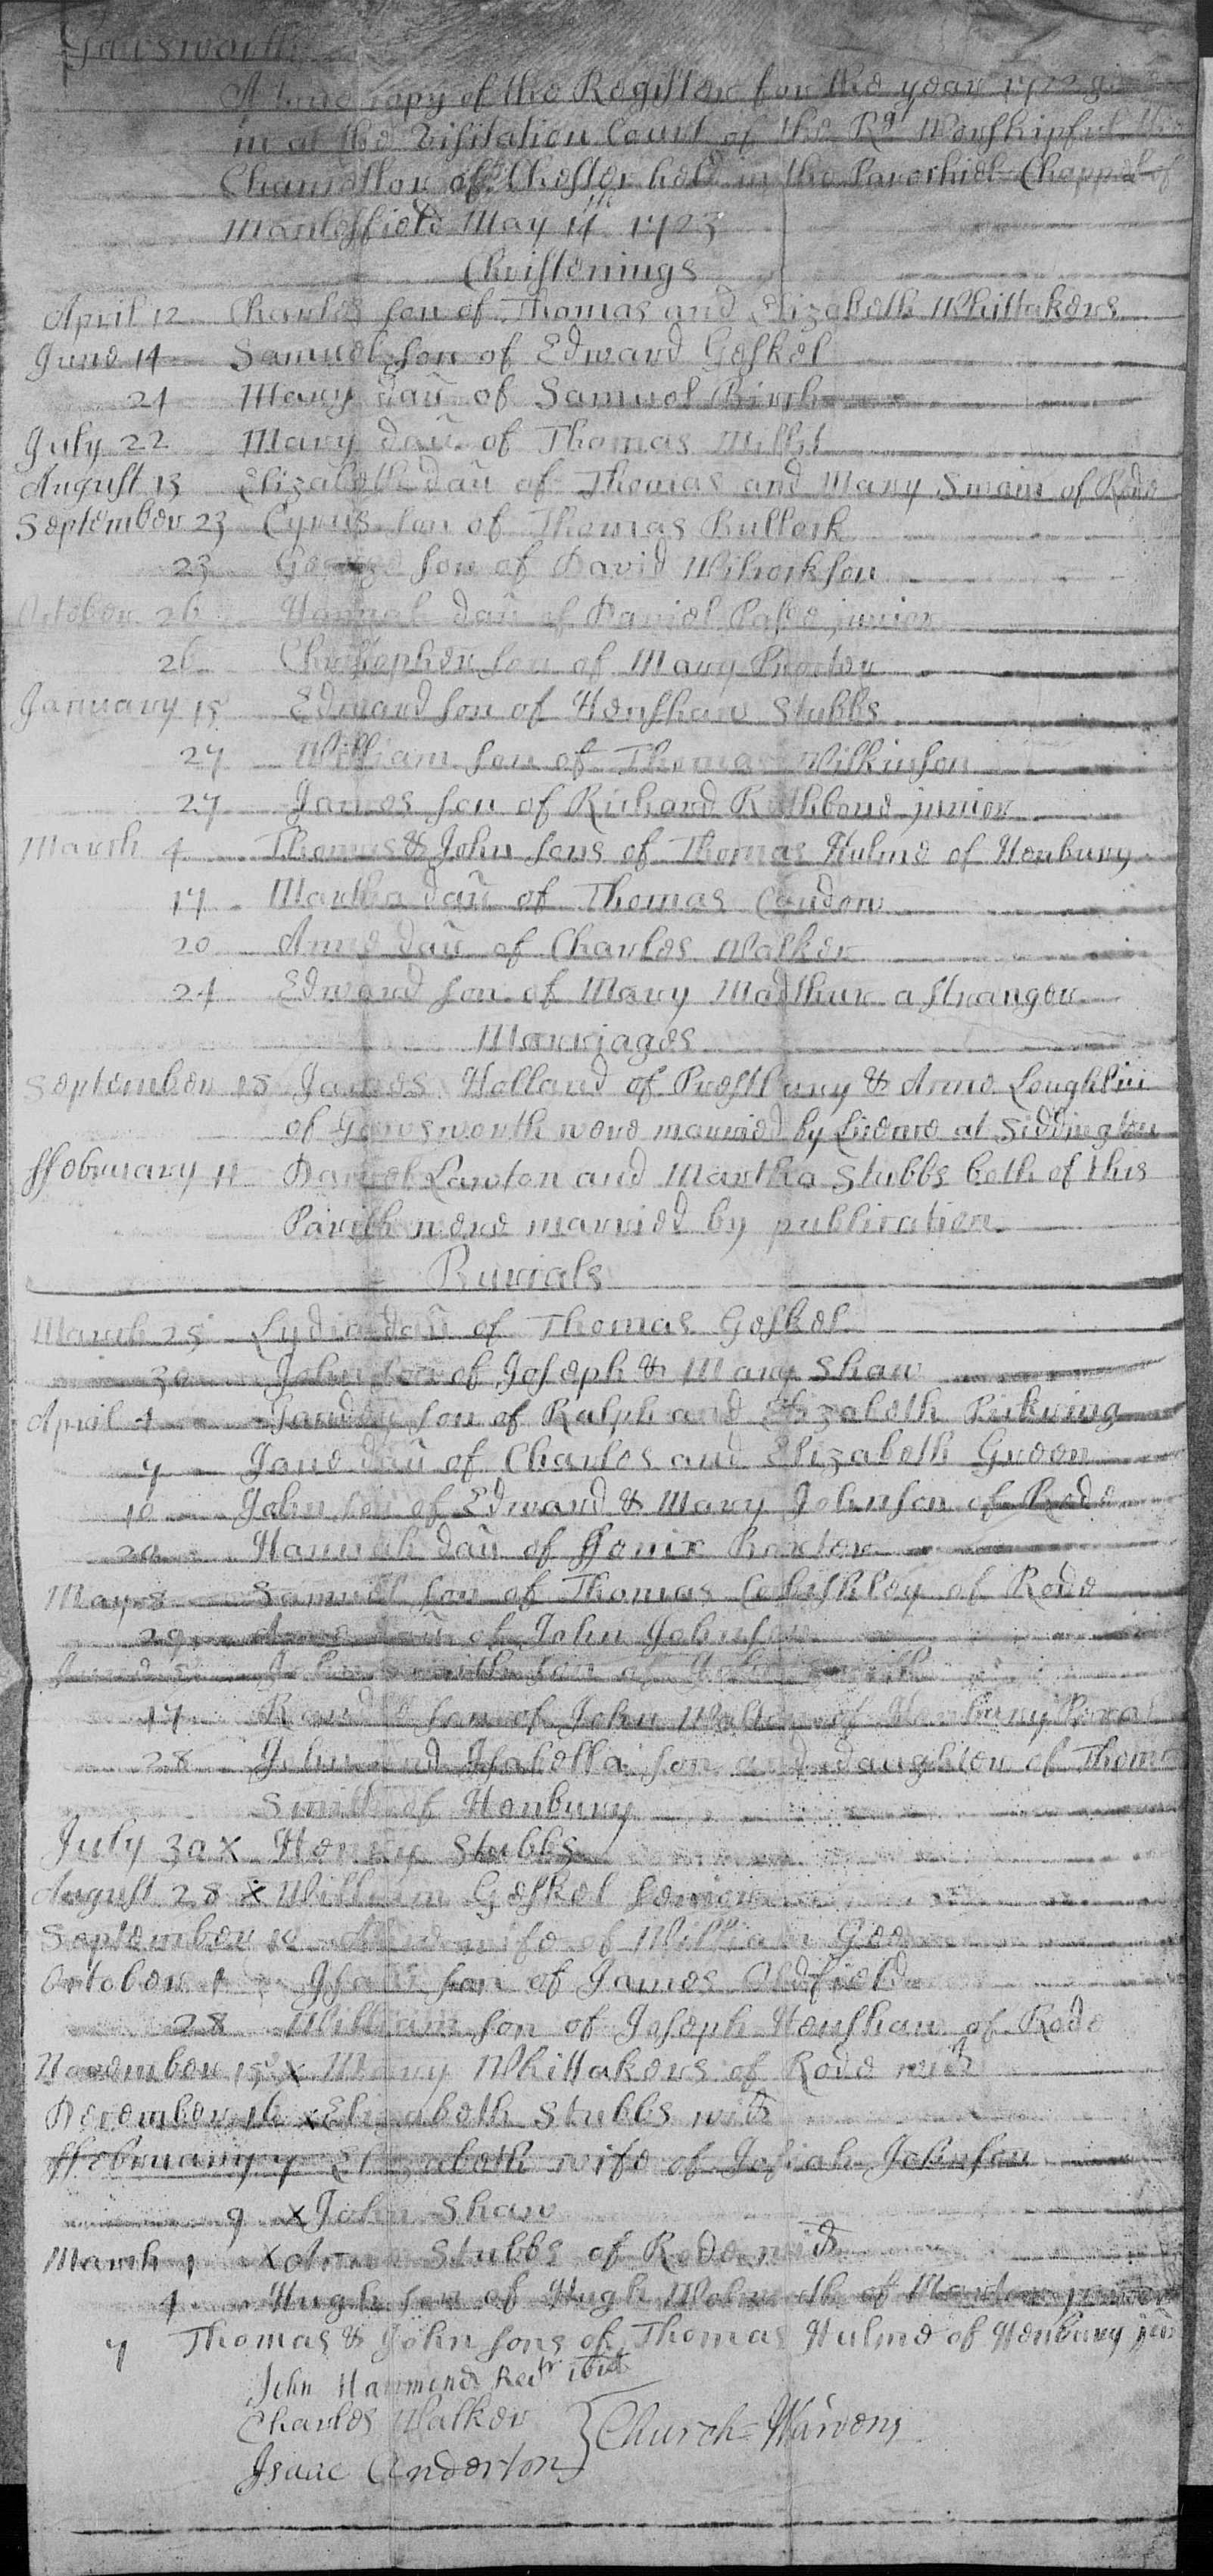 Gawsworth
A true copy of the Register for the year 1722 gi
in at the Visitation Court of the Rt Worshipful the
Chancellor of Chester held in the Parochiel Chappel of
Manlesfield May 17th 1723
Christenings
April 12 Charles son of Thomas and Elizabeth Whittakers
June 14 Samuel son of Edward Geskel
24 Mary dau of Samuel Birch
July 22 Mary dau of Thomas
August 13 Elizabeth dau of Thomas and Mary Swain of Rode
September 23 Cyrus son of Thomas Bullock
23 George son of David Wilcockson
October 26 Hannah dau of Daniel junior
26 Christopher son of Mary Procter
January 15 Edward son of Henshaw Stubbs
27 William son of Thomas Wilkinson
27 James son of Richard Rathbone junior
March 4 Thomas & John sons of Thomas Hulme of Henbury
17 Martha dau of Thomas
20 Anne dau of Charles Walker
24 Edward son of Mary a stranger
Marriages
September 18 James Holland of Prestbury & Anne
of Gawsworth were married by Licence at Siddington
ffebruary 11 Daniel Lawton and Martha Stubbs both of this
Parish were married by publication
Burials
March 25 Lydia dau of Thomas Geskel
30 John son of Joseph & Mary Shaw
April 4 son of Ralph and Elizabeth Pickring
7 Jane dau of Charles and Elizabeth Green
10 John son of Edward & Mary Johnson of Rode
20 Hannah dau of Baxter
May 8 Samuel son of Thomas of Rode
29 Anne dau of John Johnson
John Smith son of John Smith
17 son of John of Henbury
28 John and Isabella son and daughter of Thom
Smith of Henbury
July 30 x Henry Stubbs
August 28 x William Geskel senior
September 10 wife of William Gee
October 1 Isaac son of James Oldfield
28 William son of Joseph Henshaw of Rode
November 15 x Mary Whittakers of Rode wid
December 16 x Elizabeth Stubbs wid
ffebruary 7 Elizabeth wife of Josiah Johnson
9 x John Shaw
March 1 x Anne Stubbs of Rode wid
4 Hugh son of Hugh of Marton
7 Thomas & John sons of Thomas Hulme of Henbury
John Hammond Rectr ibid
Charles Walker
Isaac Anderton } Church-Wardens